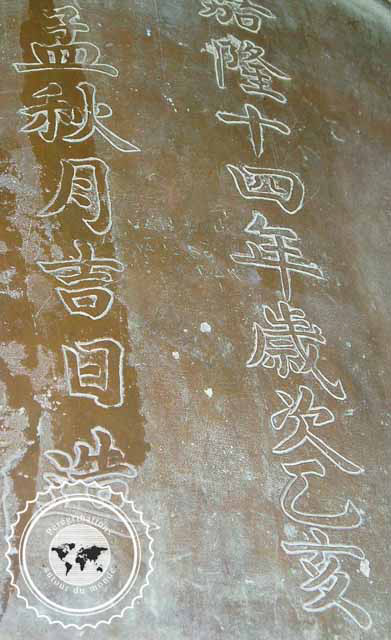 嘉隆十四年歲次乙亥
孟秋月吉日造
Pérégrinations
autour du monde